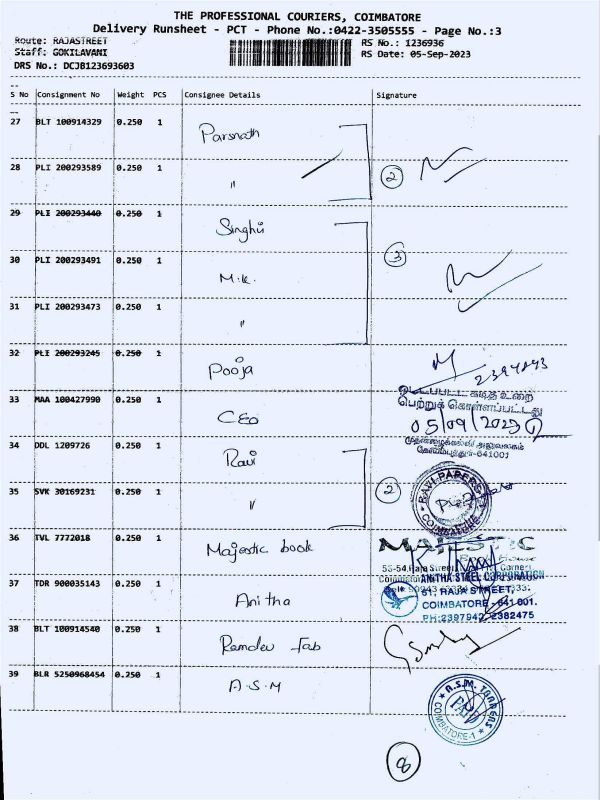 THE PROFESSIONAL COURIERS, COIMBATORE
Delivery Runsheet - PCT - Phone No.:0422-3505555 - Page No.:3
Route: RAJASTREET RS No.: 1236936
Staff: GOKILAVANI RS Date: 05-Sep-2023
DRS No.: DCJB123693603
S No Consignment No Weight PCS Consignee Details Signature
27 BLT 100914329 0.250 1 Parsnath
28 PLI 200293589 0.250 1 " 2
29 PLI 200293440 0.250 1 Singhvi
30 PLI 200293491 0.250 1 M.K. 3
31 PLI 200293473 0.250 1 "
32 PLI 200293245 0.250 1 Pooja
33 MAA 100427990 0.250 1 CEO
ஒட்டப்பட்ட கடித உறை
பெற்றுக் கொள்ளப்பட்டது
05/09/2023 1
முதன்மைக்கல்வி அலுவலகம்
கோயம்புத்தூர்-641001
34 DDL 1209726 0.250 1 Ravi
35 SVK 30169231 0.250 1 " 2
RAVI PAPERS
COIMBATORE
36 TVL 7772018 0.250 1 Majestic book
MAJESTIC
Book House
53-54, Raja Street
37 TDR 900035143 0.250 1 Anitha
ANITHA STEEL CORPORATION
61, RAJA STREET,
COIMBATORE - 641 001.
PH:2397942, 2382475
38 BLT 100914540 0.250 1 Ramdev Fab
39 BLR 5250968454 0.250 1 A.S.M
A.S.M.
COIMBATORE-1
8